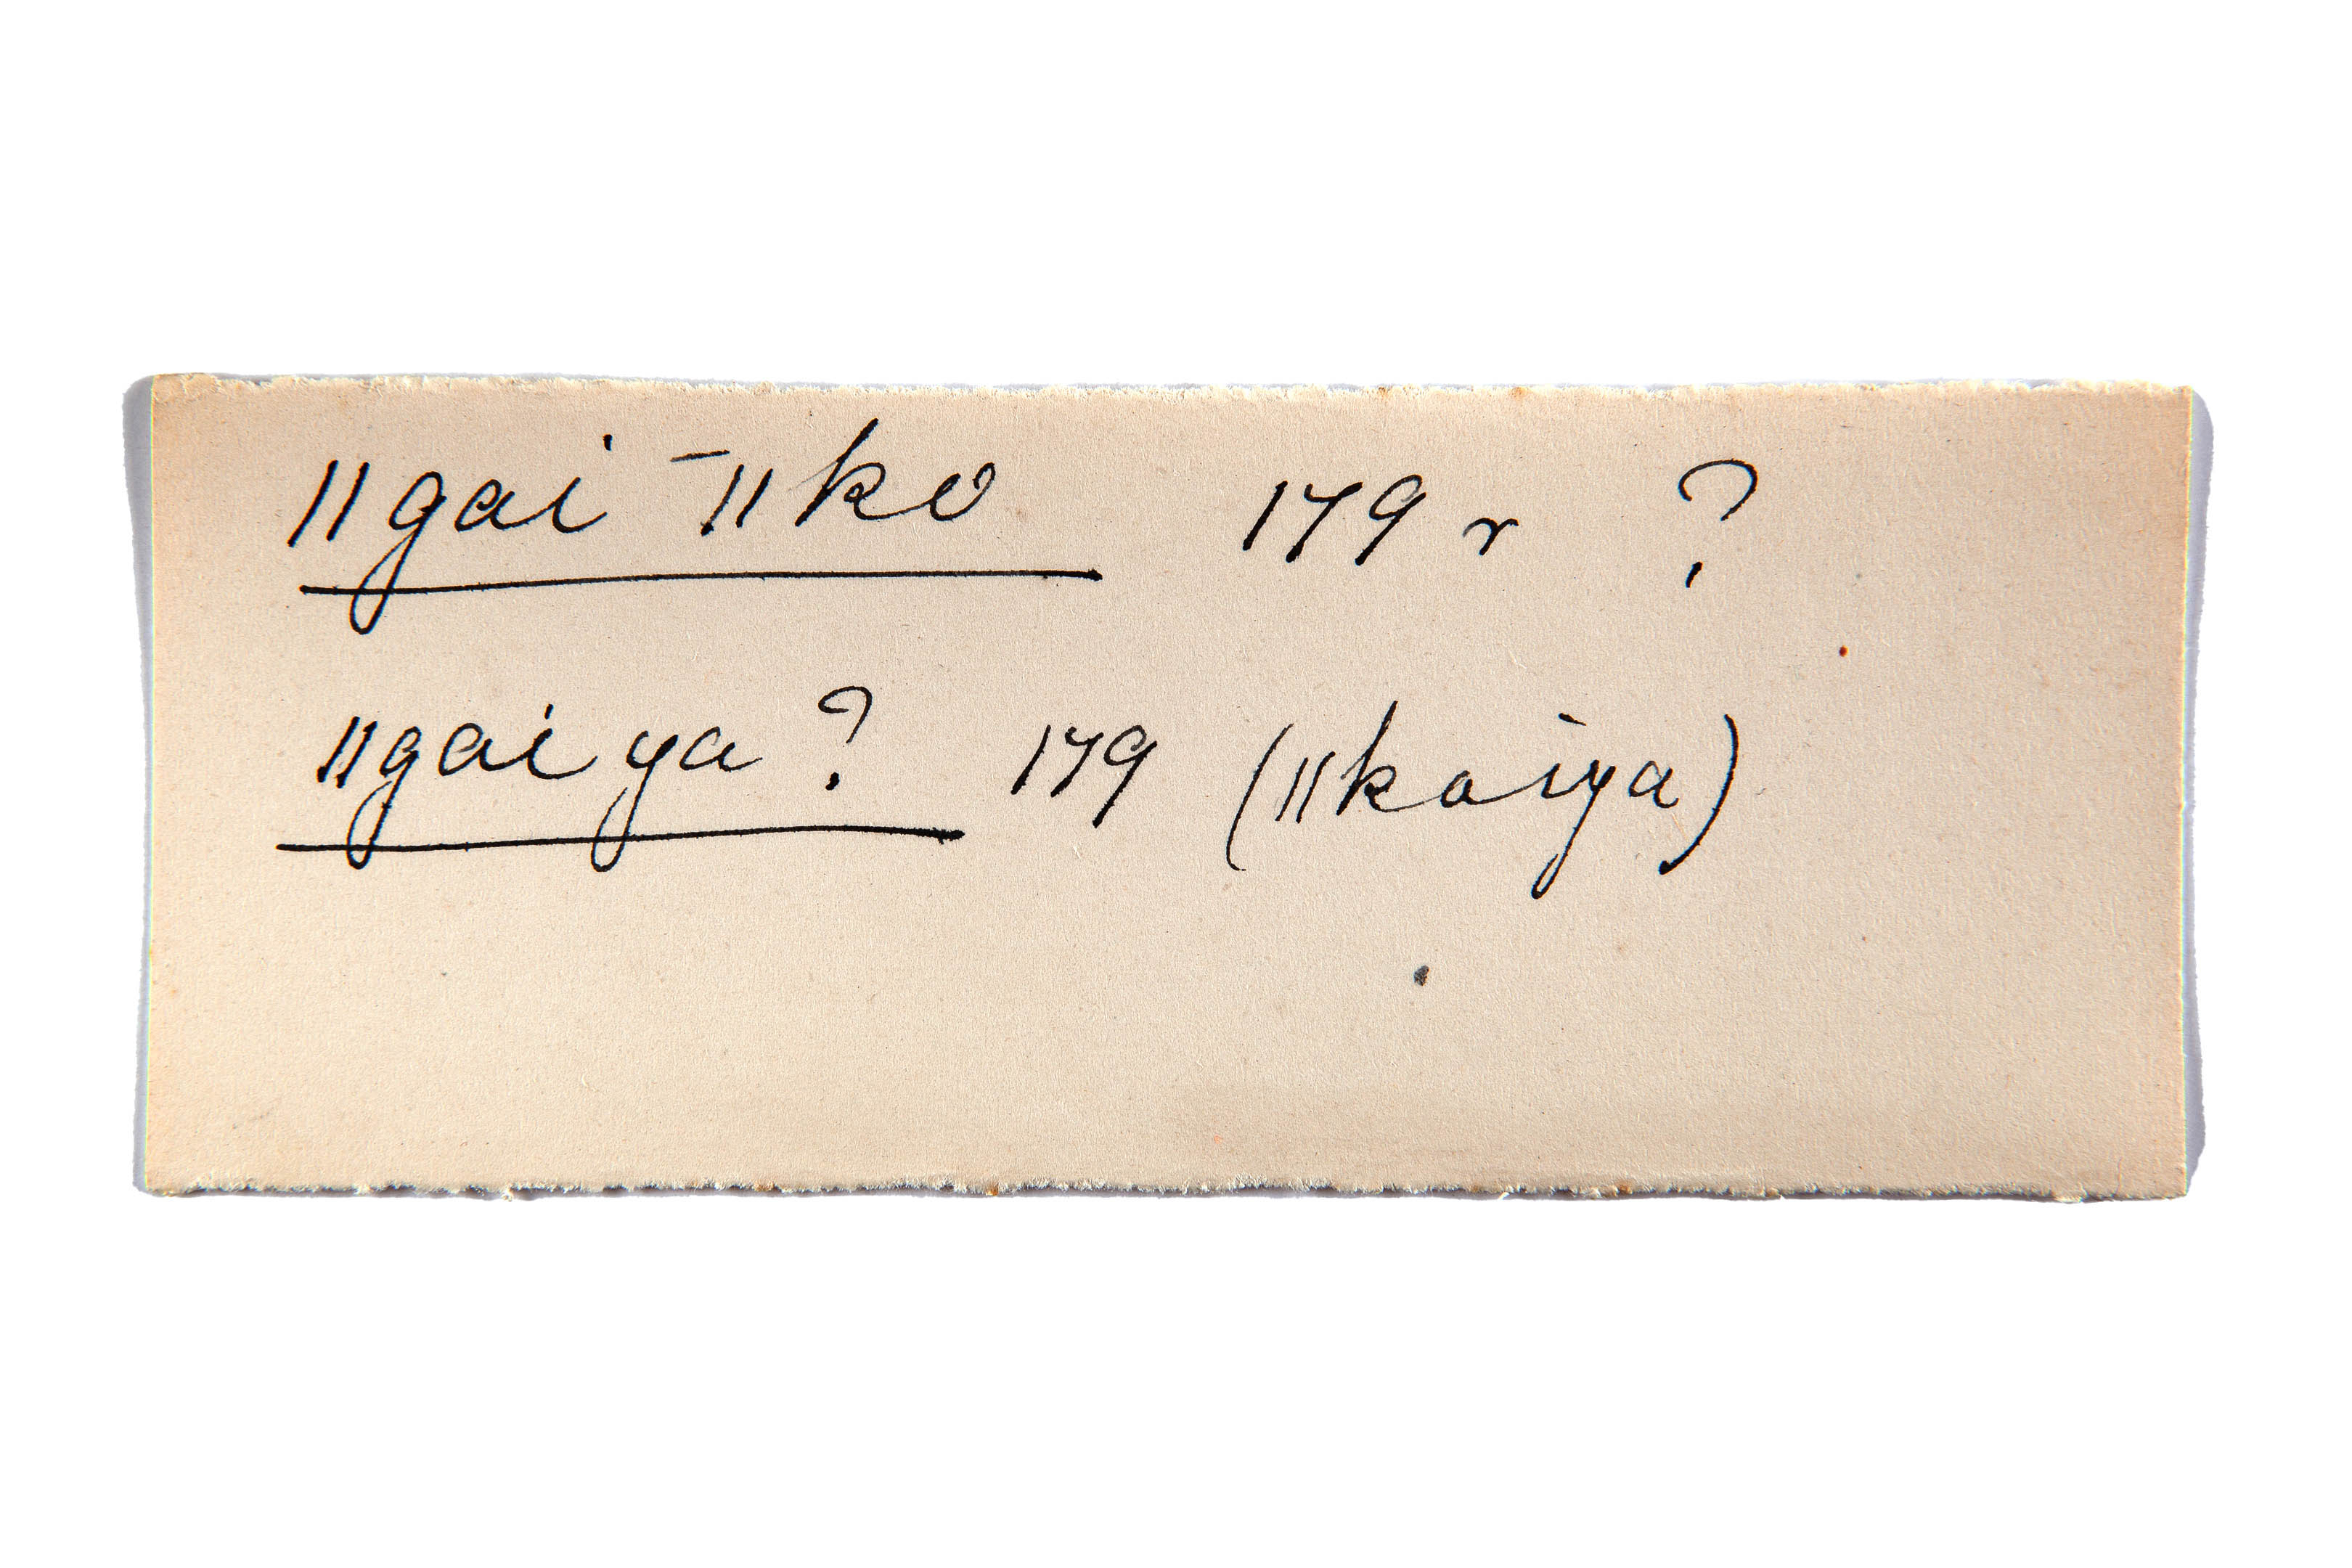 ǁgai ‾ǁko 179 r ?
ǁgaiya? 179 (ǁkaiya)